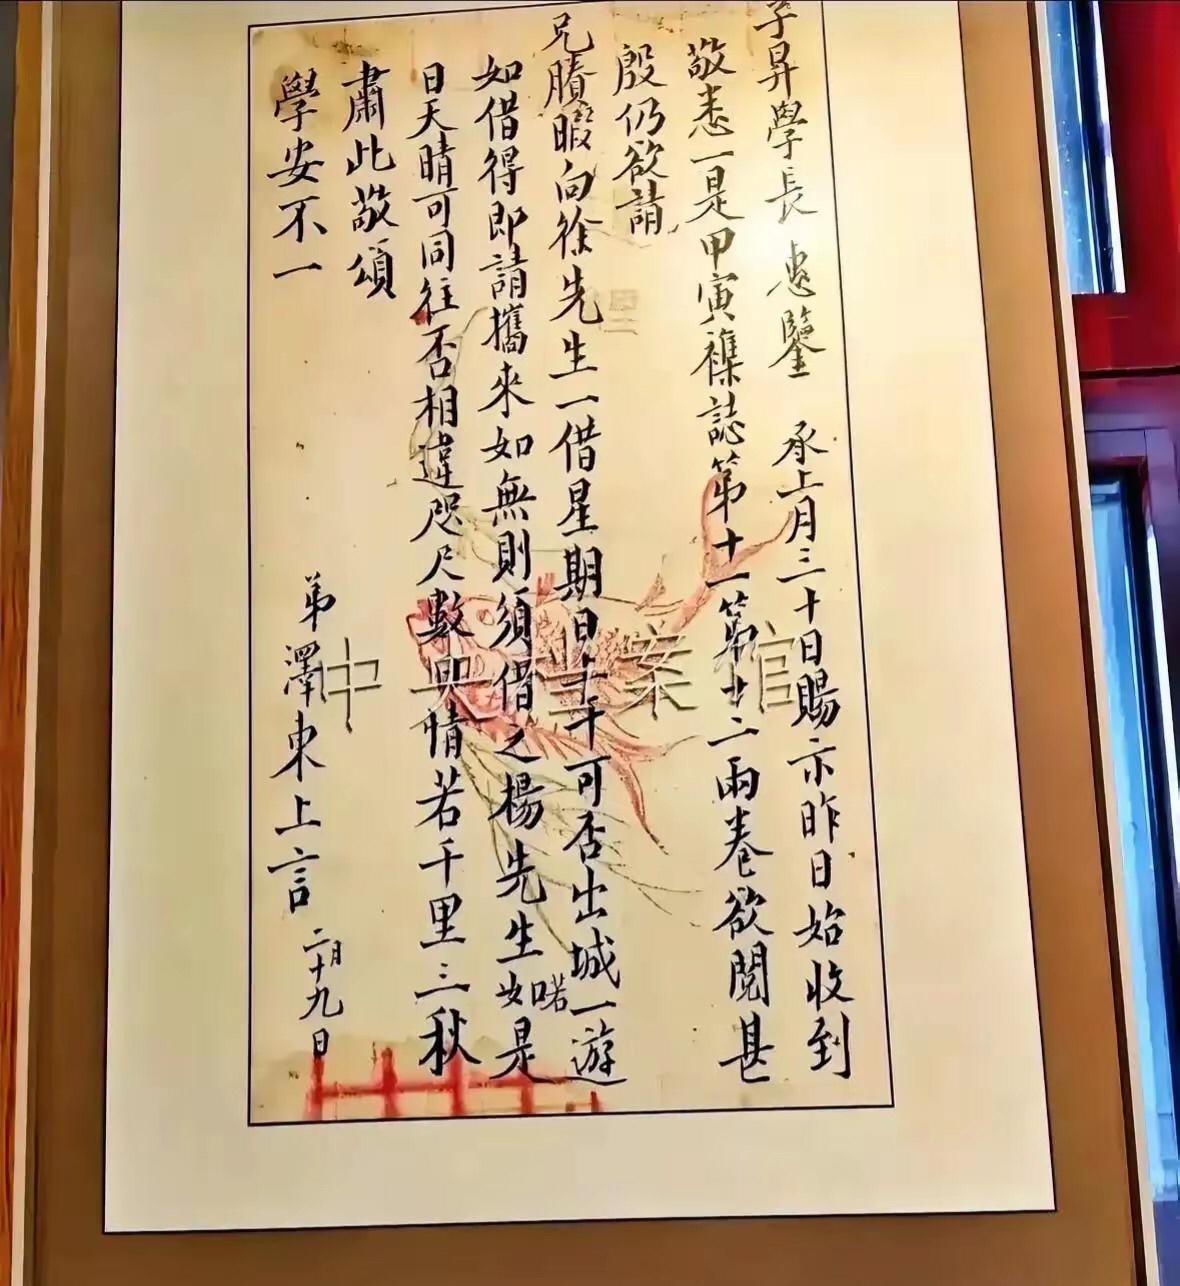 子昇學長惠鑒 承上月三十日賜示昨日始收到
敬悉一是甲寅襍誌第十一第十二兩卷欲閱甚
殷仍欲請
兄賸暇向徐先生一借星期日上午可否出城一遊
如借得即請攜來如無則須借之楊先生處如是
日天晴可同往否相違咫尺數日情若千里三秋
肅此敬頌
學安不一
弟澤東上言
二月十九日
中央档案馆